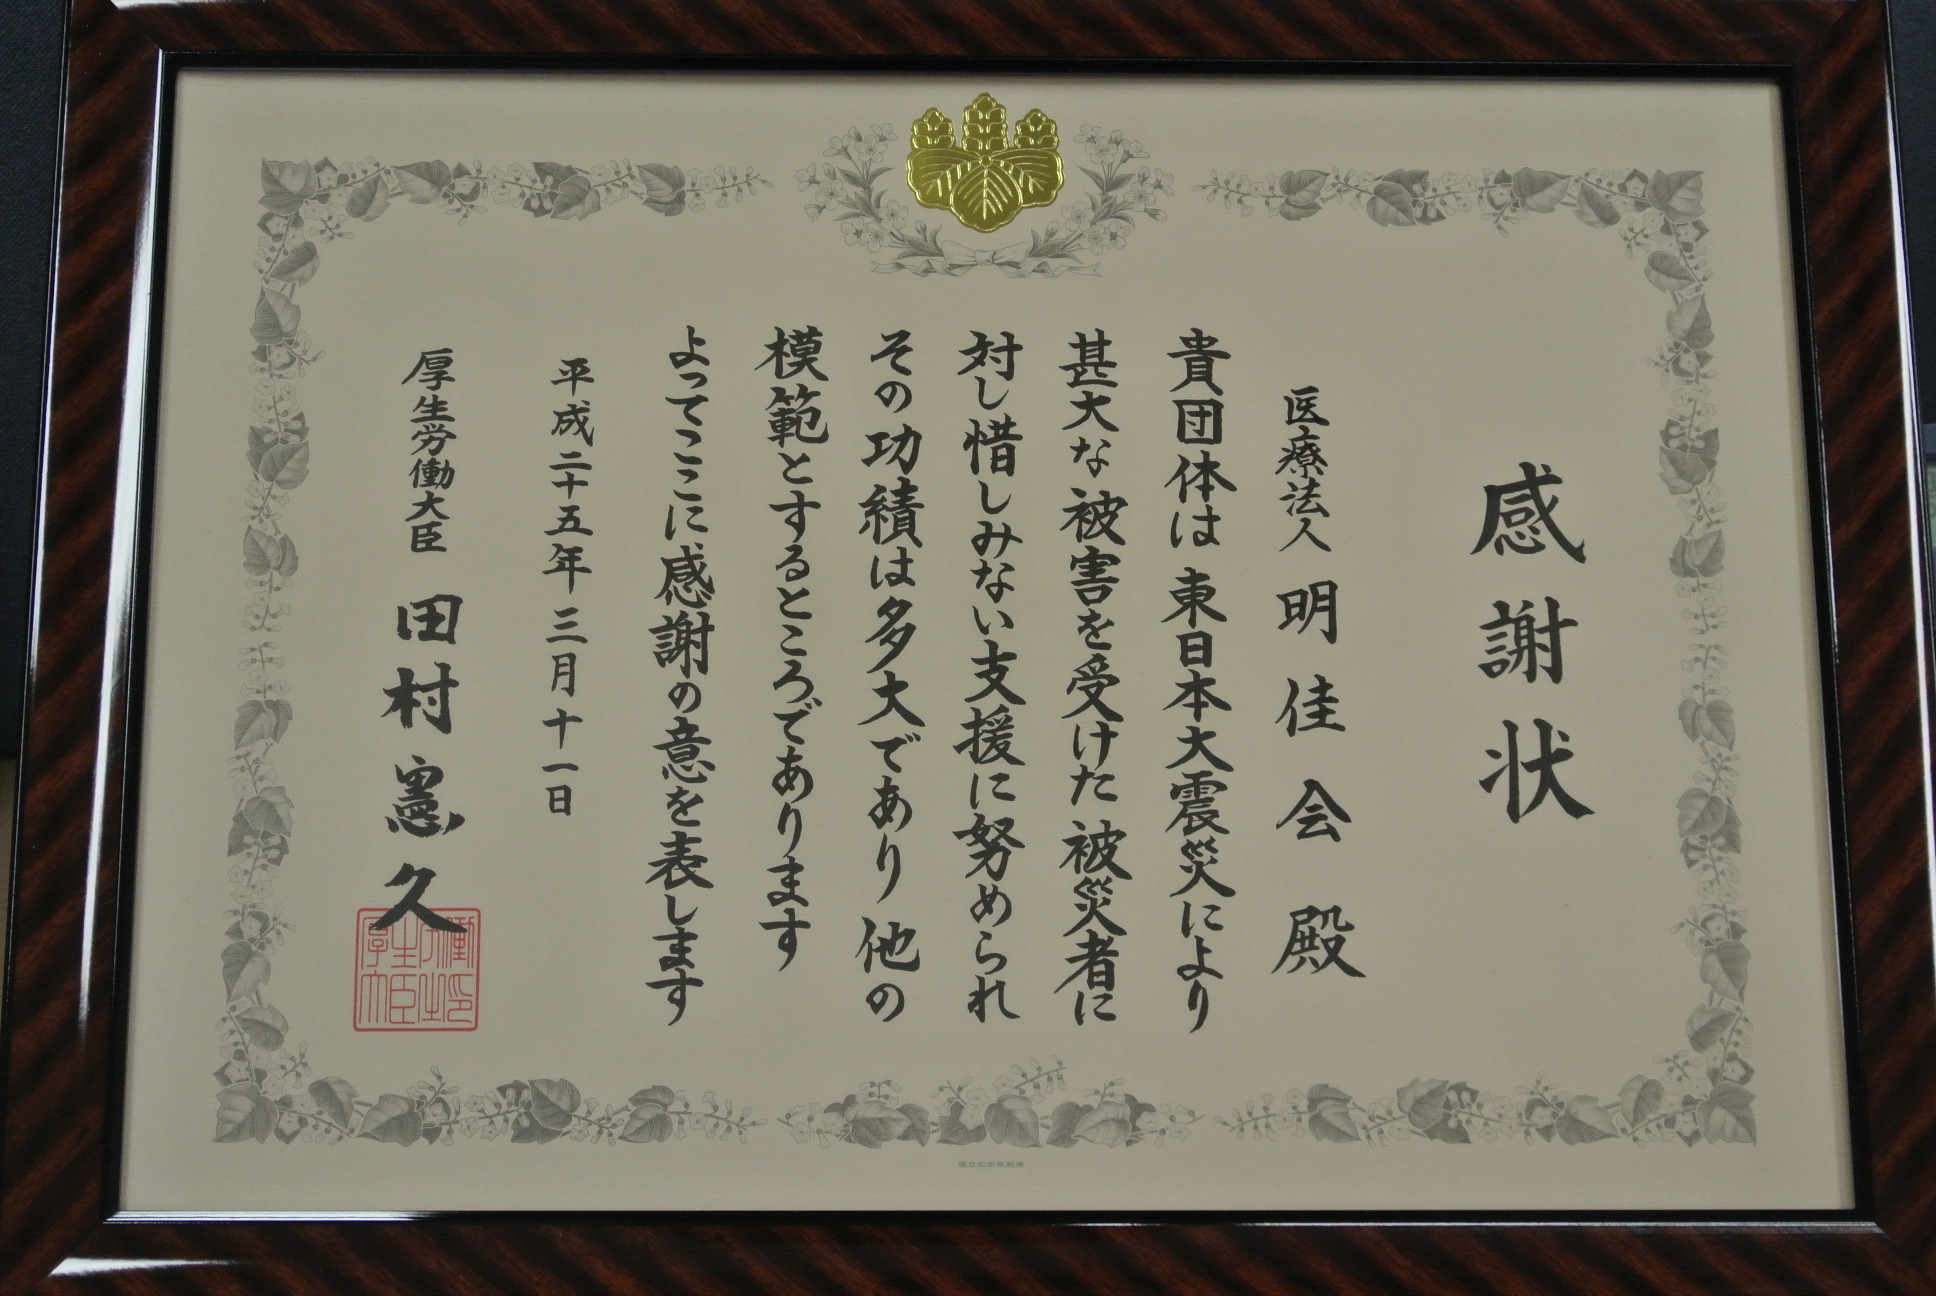 感謝状
医療法人 明佳会 殿
貴団体は東日本大震災により
甚大な被害を受けた被災者に
対し惜しみない支援に努められ
その功績は多大であり他の
模範とするところであります
よってここに感謝の意を表します
平成二十五年三月十一日
厚生労働大臣 田村憲久
国立印刷局製造